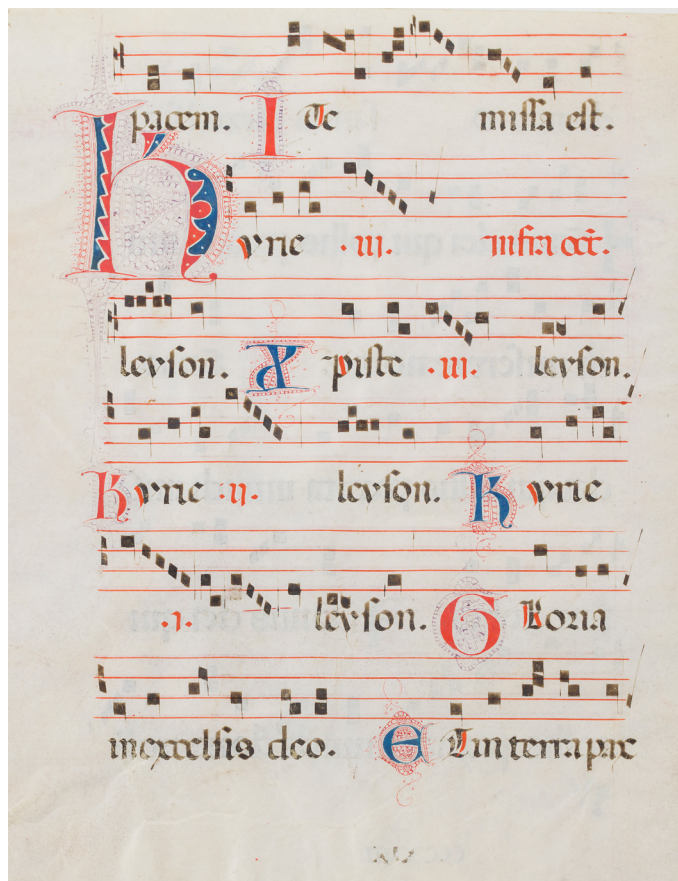 pacem. I Te missa est.
Kyrie .iii. infra oct.
leyson. Xpiste .iii. leyson.
Kyrie .ii. leyson. Kyrie
.i. leyson. Gloria
in excelsis deo. Et in terra pax